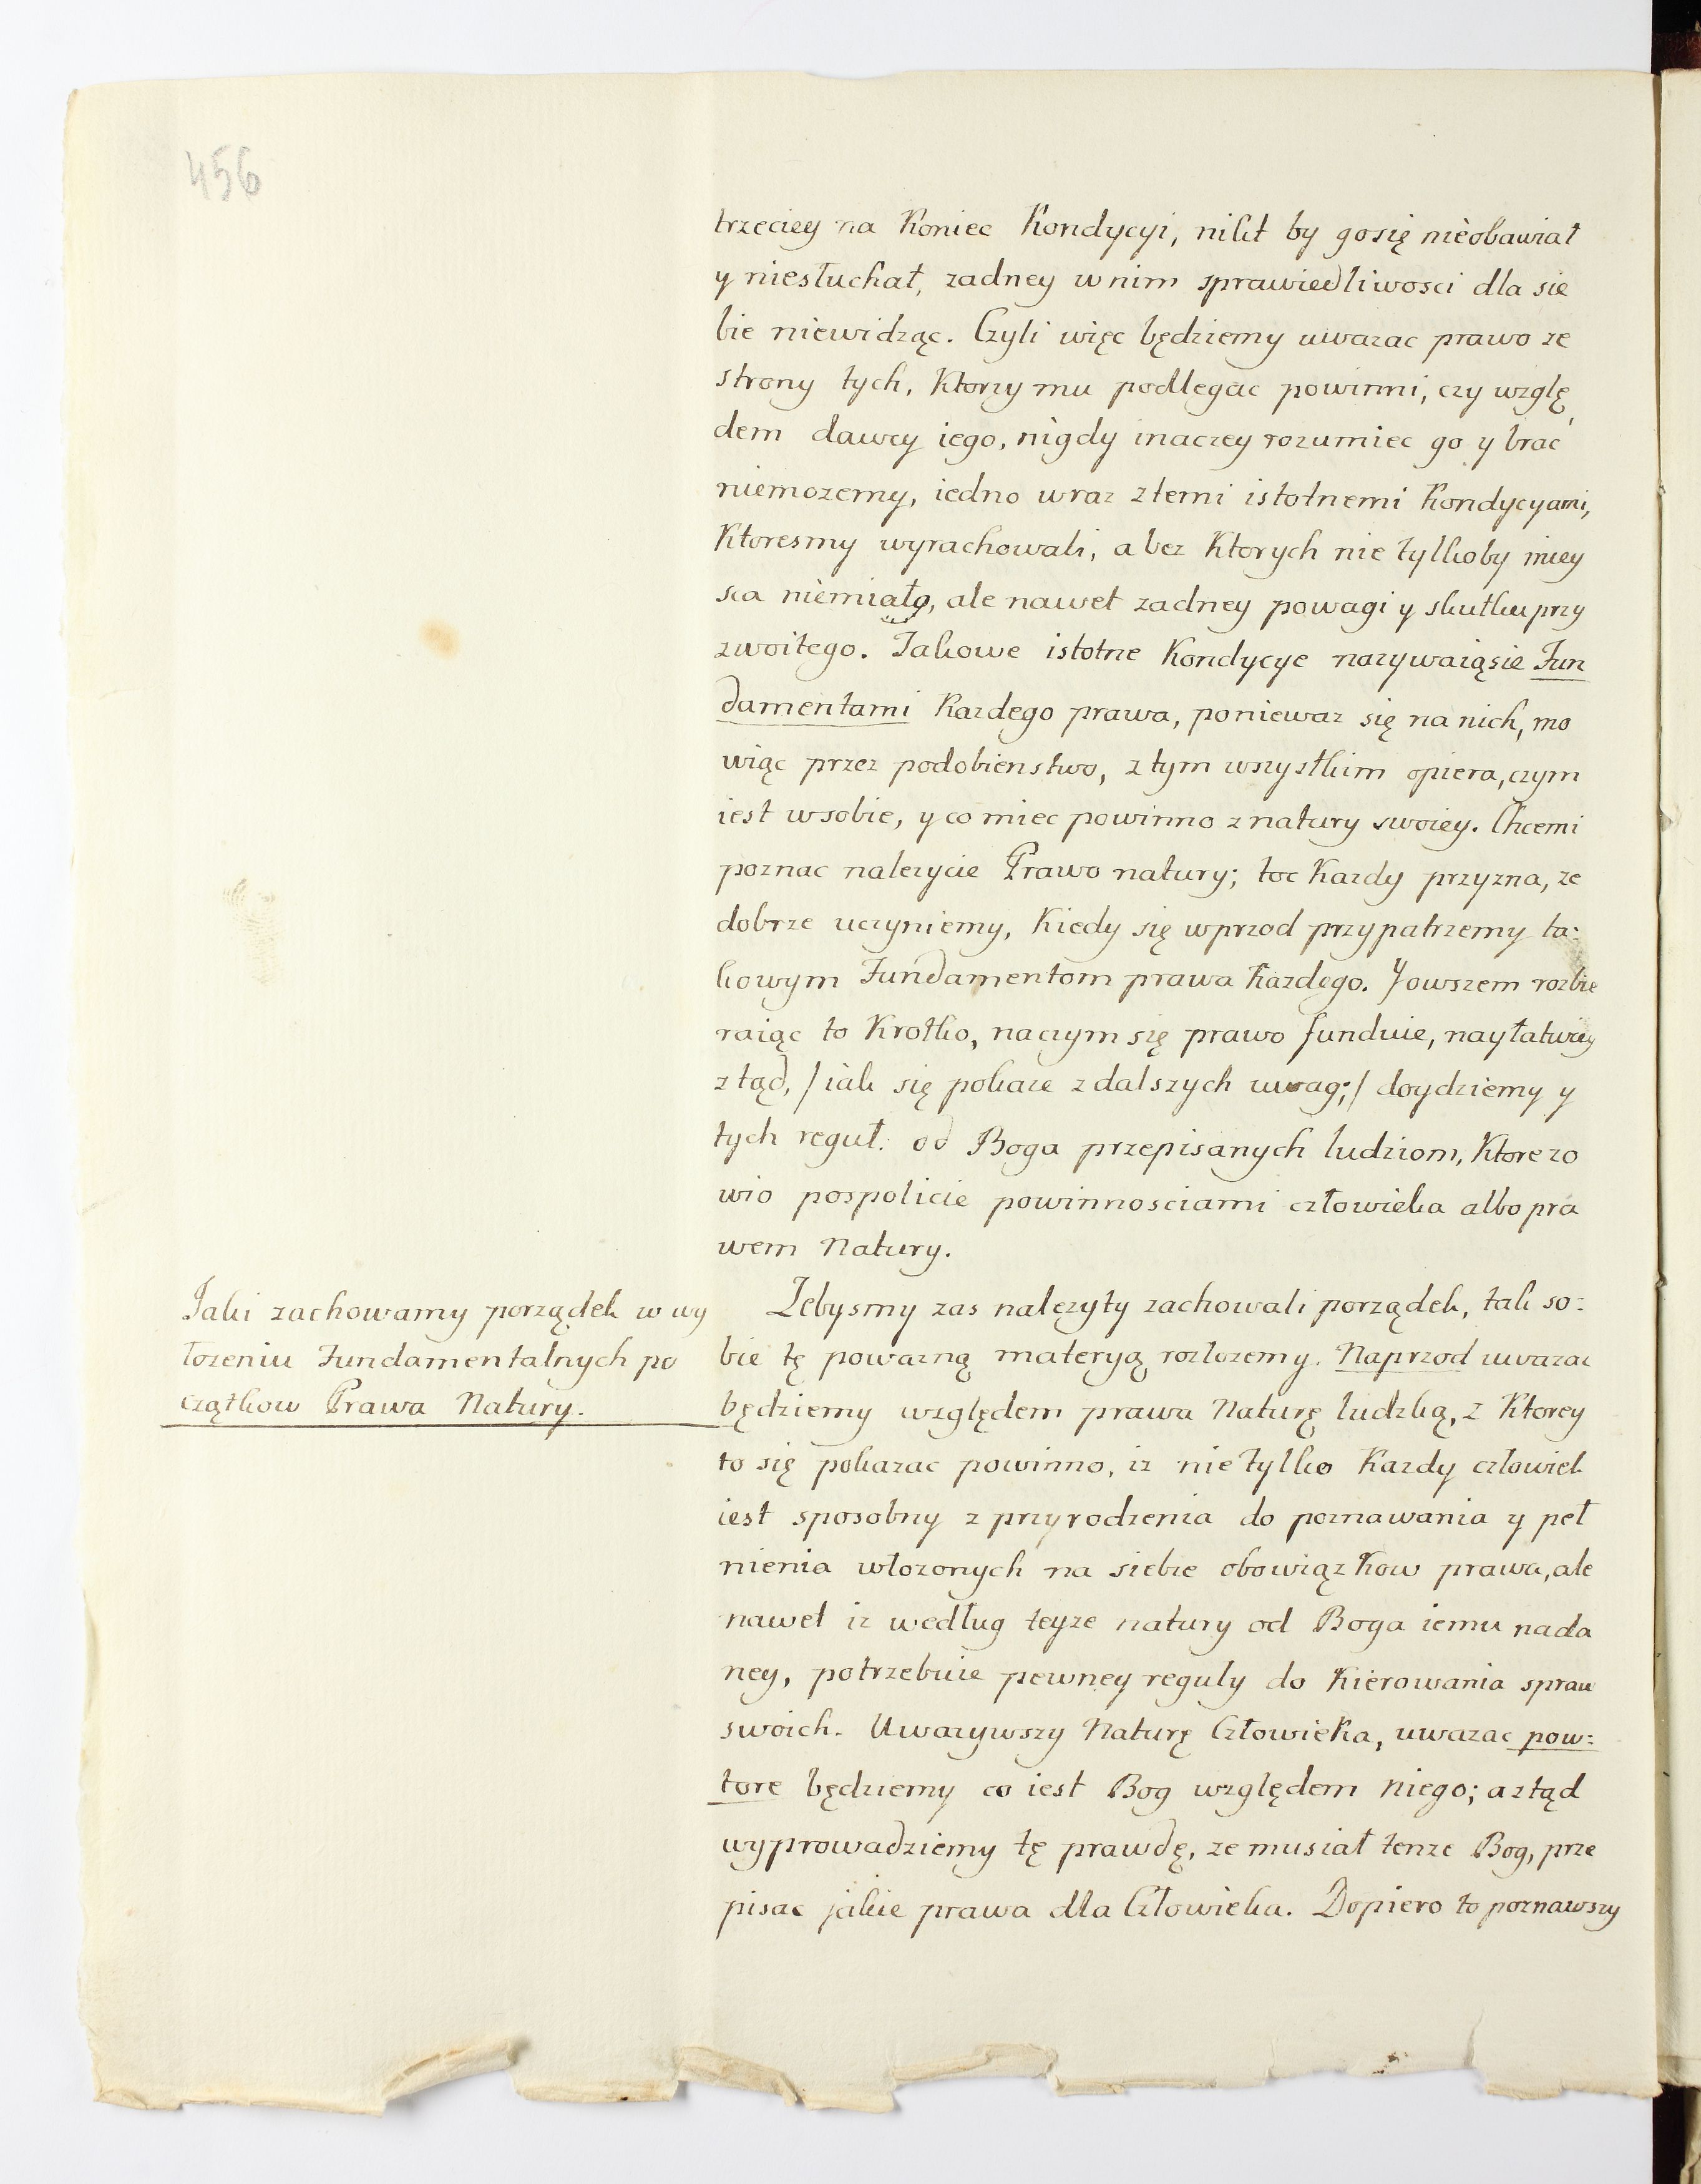 456
trzeciey na Koniec Kondycyi, nikt by gosię nieobawiał
y niesłuchał, zadney wnim sprawiedliwosci dla sie
bie niewidząc. Czyli więc będziemy uwazac prawo ze
strony tych, Ktorzy mu podlegac powinni, czy wzglę
dem dawcy iego, nigdy inaczey rozumiec go y brac
niemozemy, iedno wraz ztemi istotnemi Kondycyami,
Ktoresmy wyrachowali, a bez Ktorych nie tylkoby miey
sca niemiało, ale nawet zadney powagi y skutku przy
zwoitego. Takowe istotne Kondycye nazywaiąsie Fun
damentami Kazdego prawa, poniewaz się na nich, mo
wiąc przez podobienstwo, z tym wszystkim opiera, czym
iest wsobie, y co miec powinno z natury swoiey. Chcemi
poznac nalezycie Prawo natury; toc Kazdy przyzna, ze
dobrze uczyniemy, Kiedy się wprzod przypatrzemy ta:
kowym Fundamentom prawa Kazdego. Y owszem rozbie
raiąc to Krotko, naczym się prawo funduie, nayłatwiey
ztąd, / iak się pokaze z dalszych uwag; / doydziemy y
tych reguł. od Boga przepisanych ludziom, Ktore zo
wio pospolicie powinnosciami człowieka albo pra
wem Natury.
Jaki zachowamy porządek w wy
łozeniu Fundamentalnych po
czątkow Prawa Natury.
Zebysmy zas nalezyty zachowali porządek, tak so:
bie tę powazną materyą rozłozemy. Naprzod uwazac
będziemy względem prawa Naturę ludzką, z Ktorey
to się pokazac powinno, iz nie tylko Kazdy człowiek
iest sposobny z przyrodzenia do poznawania y peł
nienia włozonych na siebie obowiązkow prawa, ale
nawet iz według teyze natury od Boga iemu nada
ney, potrzebuie pewney reguly do Kierowania spraw
swoich. Uwazywszy Naturę Człowieka, uwazac pow:
tore będziemy co iest Bog względem niego; a ztąd
wyprowadziemy tę prawdę, ze musiał tenze Bog, prze
pisac jakie prawa dla Człowieka. Dopiero to poznawszy